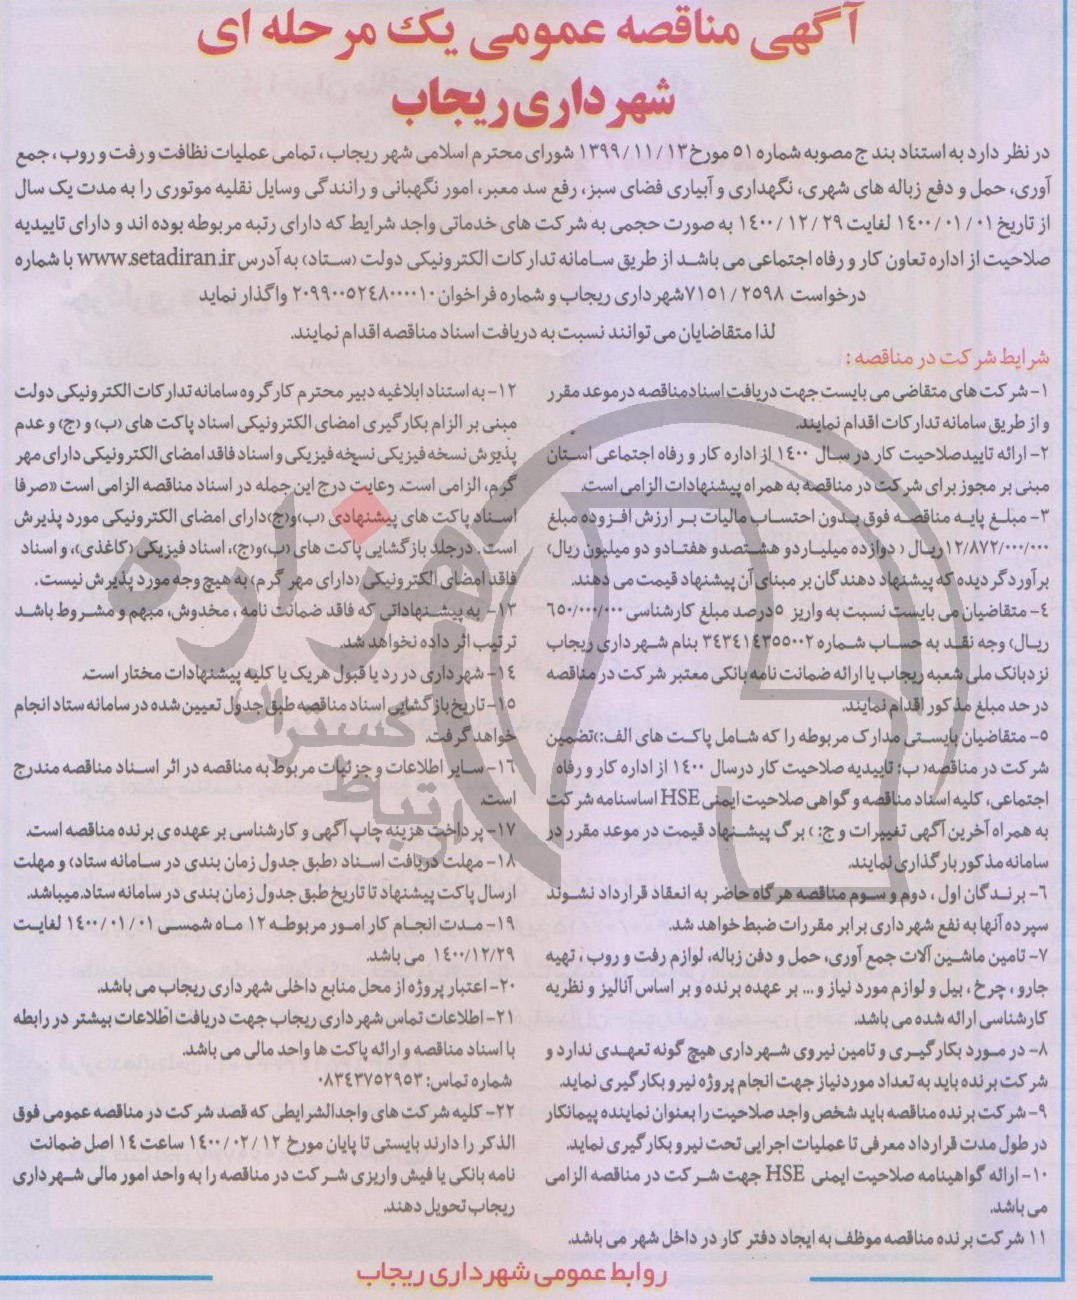 آگهی مناقصه عمومی یک مرحله ای
شهرداری ریجاب
در نظر دارد به استناد بند ج مصوبه شماره ۵۱ مورخ ۱۳۹۹/۱۱/۱۳ شورای محترم اسلامی شهر ریجاب ، تمامی عملیات نظافت و رفت و روب ، جمع
آوری، حمل و دفع زباله های شهری، نگهداری و آبیاری فضای سبز، رفع سد معبر، امور نگهبانی و رانندگی وسایل نقلیه موتوری را به مدت یک سال
از تاریخ ۱۴۰۰/۰۱/۰۱ لغایت ۱۴۰۰/۱۲/۲۹ به صورت حجمی به شرکت های خدماتی واجد شرایط که دارای رتبه مربوطه بوده اند و دارای تاییدیه
صلاحیت از اداره تعاون کار و رفاه اجتماعی می باشد از طریق سامانه تدارکات الکترونیکی دولت (ستاد) به آدرس www.setadiran.ir با شماره
درخواست ۷۱۵۱/۲۵۹۸ شهرداری ریجاب و شماره فراخوان ۲۰۹۹۰۰۵۲۴۸۰۰۰۰۱۰ واگذار نماید
لذا متقاضایان می توانند نسبت به دریافت اسناد مناقصه اقدام نمایند.
شرایط شرکت در مناقصه :
۱- شرکت های متقاضی می بایست جهت دریافت اسناد مناقصه در موعد مقرر
و از طریق سامانه تدارکات اقدام نمایند.
۲- ارائه تایید صلاحیت کار در سال ۱۴۰۰ از اداره کار و رفاه اجتماعی استان
مبنی بر مجوز برای شرکت در مناقصه به همراه پیشنهادات الزامی است.
۳- مبلغ پایه مناقصه فوق بدون احتساب مالیات بر ارزش افزوده مبلغ
۱۲/۸۷۲/۰۰۰/۰۰۰ ریال ( دوازده میلیارد و هشتصد و هفتاد و دو میلیون ریال)
برآورد گردیده که پیشنهاد دهندگان بر مبنای آن پیشنهاد قیمت می دهند.
۴- متقاضیان می بایست نسبت به واریز ۵ درصد مبلغ کارشناسی ۶۵۰/۰۰۰/۰۰۰
ریال) وجه نقد به حساب شماره ۳۴۳۴۱۴۳۵۵۰۰۲ بنام شهرداری ریجاب
نزد بانک ملی شعبه ریجاب یا ارائه ضمانت نامه بانکی معتبر شرکت در مناقصه
در حد مبلغ مذکور اقدام نمایند.
۵- متقاضیان بایستی مدارک مربوطه را که شامل پاکت های الف:)تضمین
شرکت در مناقصه( ب: تاییدیه صلاحیت کار در سال ۱۴۰۰ از اداره کار و رفاه
اجتماعی، کلیه اسناد مناقصه و گواهی صلاحیت ایمنی HSE اساسنامه شرکت
به همراه آخرین آگهی تغییرات و ج: ) برگ پیشنهاد قیمت در موعد مقرر در
سامانه مذکور بارگذاری نمایند.
۶- برندگان اول ، دوم و سوم مناقصه هرگاه حاضر به انعقاد قرارداد نشوند
سپرده آنها به نفع شهرداری برابر مقررات ضبط خواهد شد.
۷- تامین ماشین آلات جمع آوری، حمل و دفن زباله، لوازم رفت و روب ، تهیه
جارو ، چرخ ، بیل و لوازم مورد نیاز و... بر عهده برنده و بر اساس آنالیز و نظریه
کارشناسی ارائه شده می باشد.
۸- در مورد بکارگیری و تامین نیروی شهرداری هیچ گونه تعهدی ندارد و
شرکت برنده باید به تعداد مورد نیاز جهت انجام پروژه نیرو بکارگیری نماید.
۹- شرکت برنده مناقصه باید شخص واجد صلاحیت را بعنوان نماینده پیمانکار
در طول مدت قرارداد معرفی تا عملیات اجرایی تحت نیرو بکارگیری نماید.
۱۰- ارائه گواهینامه صلاحیت ایمنی HSE جهت شرکت در مناقصه الزامی
می باشد.
۱۱ شرکت برنده مناقصه موظف به ایجاد دفتر کار در داخل شهر می باشد.
۱۲- به استناد ابلاغیه دبیر محترم کارگروه سامانه تدارکات الکترونیکی دولت
مبنی بر الزام بکارگیری امضای الکترونیکی اسناد پاکت های (ب) و (ج) و عدم
پذیرش نسخه فیزیکی نسخه فیزیکی و اسناد فاقد امضای الکترونیکی دارای مهر
گرم، الزامی است. رعایت درج این جمله در اسناد مناقصه الزامی است «صرفا
اسناد پاکت های پیشنهادی (ب)و(ج)دارای امضای الکترونیکی مورد پذیرش
است. درجلد بازگشایی پاکت های (ب)و(ج)، اسناد فیزیکی (کاغذی)، و اسناد
فاقد امضای الکترونیکی (دارای مهر گرم) به هیچ وجه مورد پذیرش نیست.
۱۳- به پیشنهاداتی که فاقد ضمانت نامه ، مخدوش، مبهم و مشروط باشد
ترتیب اثر داده نخواهد شد.
۱۴- شهرداری در رد یا قبول هریک یا کلیه پیشنهادات مختار است.
۱۵- تاریخ بازگشایی اسناد مناقصه طبق جدول تعیین شده در سامانه ستاد انجام
خواهد گرفت.
۱۶- سایر اطلاعات و جزئیات مربوط به مناقصه در اثر اسناد مناقصه مندرج
است.
۱۷- پرداخت هزینه چاپ آگهی و کارشناسی بر عهده ی برنده مناقصه است.
۱۸- مهلت دریافت اسناد (طبق جدول زمان بندی در سامانه ستاد) و مهلت
ارسال پاکت پیشنهاد تا تاریخ طبق جدول زمان بندی در سامانه ستاد.میباشد.
۱۹- مدت انجام کار امور مربوطه ۱۲ ماه شمسی ۱۴۰۰/۰۱/۰۱ لغایت
۱۴۰۰/۱۲/۲۹ می باشد.
۲۰- اعتبار پروژه از محل منابع داخلی شهرداری ریجاب می باشد.
۲۱- اطلاعات تماس شهرداری ریجاب جهت دریافت اطلاعات بیشتر در رابطه
با اسناد مناقصه و ارائه پاکت ها واحد مالی می باشد.
شماره تماس: ۰۸۳۴۳۷۵۲۹۵۳
۲۲- کلیه شرکت های واجدالشرایطی که قصد شرکت در مناقصه عمومی فوق
الذکر را دارند بایستی تا پایان مورخ ۱۴۰۰/۰۲/۱۲ ساعت ۱۴ اصل ضمانت
نامه بانکی یا فیش واریزی شرکت در مناقصه را به واحد امور مالی شهرداری
ریجاب تحویل دهند.
روابط عمومی شهرداری ریجاب
هزاره
ارتباط گستران